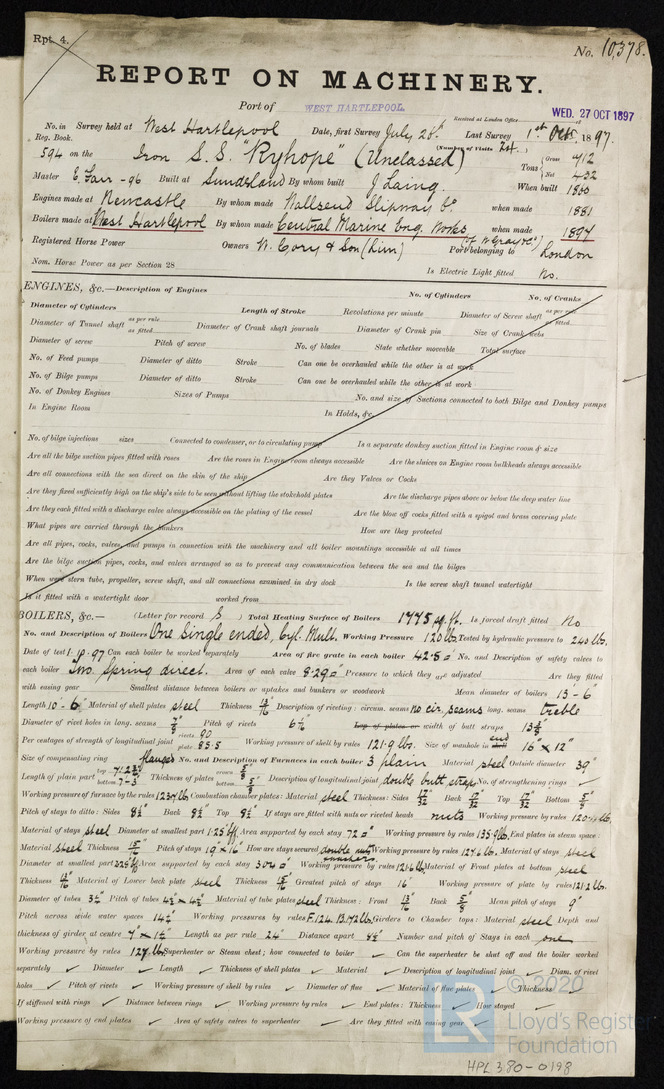 Rpt. 4.
No. 10,378.
REPORT ON MACHINERY.
Port of WEST HARTLEPOOL
Received at London Office WED. 27 OCT 1897
No. in Survey held at West Hartlepool Date, first Survey July 28th Last Survey 1st Oct. 1897.
Reg. Book. (Number of Visits 24.)
594 on the Iron S.S. "Ryhope" (Unclassed) Tons Gross 712 Net 432
Master Built at Sunderland By whom built J Laing. When built 1860
Engines made at Newcastle By whom made Wallsend Slipway Co. when made 1881
Boilers made at West Hartlepool By whom made Central Marine Eng. Works (of W Gray & Co) when made 1897
Registered Horse Power Owners W. Cory & Son (Lim) Port belonging to London
Nom. Horse Power as per Section 28 Is Electric Light fitted No.
ENGINES, &c.—Description of Engines No. of Cylinders No. of Cranks
Diameter of Cylinders Length of Stroke Revolutions per minute Diameter of Screw shaft as per rule as fitted
Diameter of Tunnel shaft as per rule as fitted Diameter of Crank shaft journals Diameter of Crank pin Size of Crank webs
Diameter of screw Pitch of screw No. of blades State whether moveable Total surface
No. of Feed pumps Diameter of ditto Stroke Can one be overhauled while the other is at work
No. of Bilge pumps Diameter of ditto Stroke Can one be overhauled while the other is at work
No. of Donkey Engines Sizes of Pumps No. and size of Suctions connected to both Bilge and Donkey pumps
In Engine Room In Holds, &c.
No. of bilge injections sizes Connected to condenser, or to circulating pump Is a separate donkey suction fitted in Engine room & size
Are all the bilge suction pipes fitted with roses Are the roses in Engine room always accessible Are the sluices on Engine room bulkheads always accessible
Are all connections with the sea direct on the skin of the ship Are they Valves or Cocks
Are they fixed sufficiently high on the ship's side to be seen without lifting the stokehold plates Are the discharge pipes above or below the deep water line
Are they each fitted with a discharge valve always accessible on the plating of the vessel Are the blow off cocks fitted with a spigot and brass covering plate
What pipes are carried through the bunkers How are they protected
Are all pipes, cocks, valves, and pumps in connection with the machinery and all boiler mountings accessible at all times
Are the bilge suction pipes, cocks, and valves arranged so as to prevent any communication between the sea and the bilges
When were stern tube, propeller, screw shaft, and all connections examined in dry dock Is the screw shaft tunnel watertight
Is it fitted with a watertight door worked from
BOILERS, &c.— (Letter for record S) Total Heating Surface of Boilers 1775 sq. ft. Is forced draft fitted No
No. and Description of Boilers One Single ended, Cyl. Mult. Working Pressure 120 lb. Tested by hydraulic pressure to 240 lbs.
Date of test 1.9.97 Can each boiler be worked separately Area of fire grate in each boiler 42.5 □' No. and Description of safety valves to
each boiler Two. Spring direct. Area of each valve 8.29 □" Pressure to which they are adjusted Are they fitted
with easing gear Smallest distance between boilers or uptakes and bunkers or woodwork Mean diameter of boilers 13 - 6"
Length 10 - 6" Material of shell plates steel Thickness 13/16" Description of riveting: circum. seams no cir. seams long. seams treble
Diameter of rivet holes in long. seams 7/8" Pitch of rivets Lap of plates or width of butt straps 13 3/8"
Per centages of strength of longitudinal joint rivets 90 plate 85.5 Working pressure of shell by rules 121.9 lb. Size of manhole in end 16" x 12"
Size of compensating ring flanged No. and Description of Furnaces in each boiler 3 plain Material steel Outside diameter 39"
Length of plain part top bottom Thickness of plates crown bottom Description of longitudinal joint double butt strap No. of strengthening rings ✓
Working pressure of furnace by the rules 123.7 lb. Combustion chamber plates: Material steel Thickness: Sides 17/32" Back 17/32" Top 17/32" Bottom 5/8"
Pitch of stays to ditto: Sides 8 1/2" Back 8 1/2" Top 8 1/2" If stays are fitted with nuts or riveted heads nuts Working pressure by rules
Material of stays steel Diameter at smallest part Area supported by each stay 72 □" Working pressure by rules 135.9 lb. End plates in steam space:
Material steel Thickness 15/16" Pitch of stays 19" x 16" How are stays secured double nuts & washers Working pressure by rules 127.6 lb. Material of stays steel
Diameter at smallest part Area supported by each stay 304 □" Working pressure by rules 121.6 lb. Material of Front plates at bottom steel
Thickness 13/16" Material of Lower back plate steel Thickness 15/16" Greatest pitch of stays 16" Working pressure of plate by rules 121.2 lb.
Diameter of tubes 3 1/4" Pitch of tubes 4 1/2" x 4 1/2" Material of tube plates steel Thickness: Front 13/16" Back 5/8" Mean pitch of stays 9"
Pitch across wide water spaces 14 1/2" Working pressures by rules F.124. B.172 lb. Girders to Chamber tops: Material steel Depth and
thickness of girder at centre 7" x 1 1/2" Length as per rule 24" Distance apart 8 1/2" Number and pitch of Stays in each one
Working pressure by rules 127 lb. Superheater or Steam chest; how connected to boiler ✓ Can the superheater be shut off and the boiler worked
separately ✓ Diameter ✓ Length ✓ Thickness of shell plates ✓ Material ✓ Description of longitudinal joint ✓ Diam. of rivet
holes ✓ Pitch of rivets ✓ Working pressure of shell by rules ✓ Diameter of flue ✓ Material of flue plates ✓ Thickness ✓
If stiffened with rings ✓ Distance between rings ✓ Working pressure by rules ✓ End plates: Thickness ✓ How stayed ✓
Working pressure of end plates ✓ Area of safety valves to superheater ✓ Are they fitted with easing gear ✓
© 2020
LR
Lloyd's Register
Foundation
HPL 380-0198